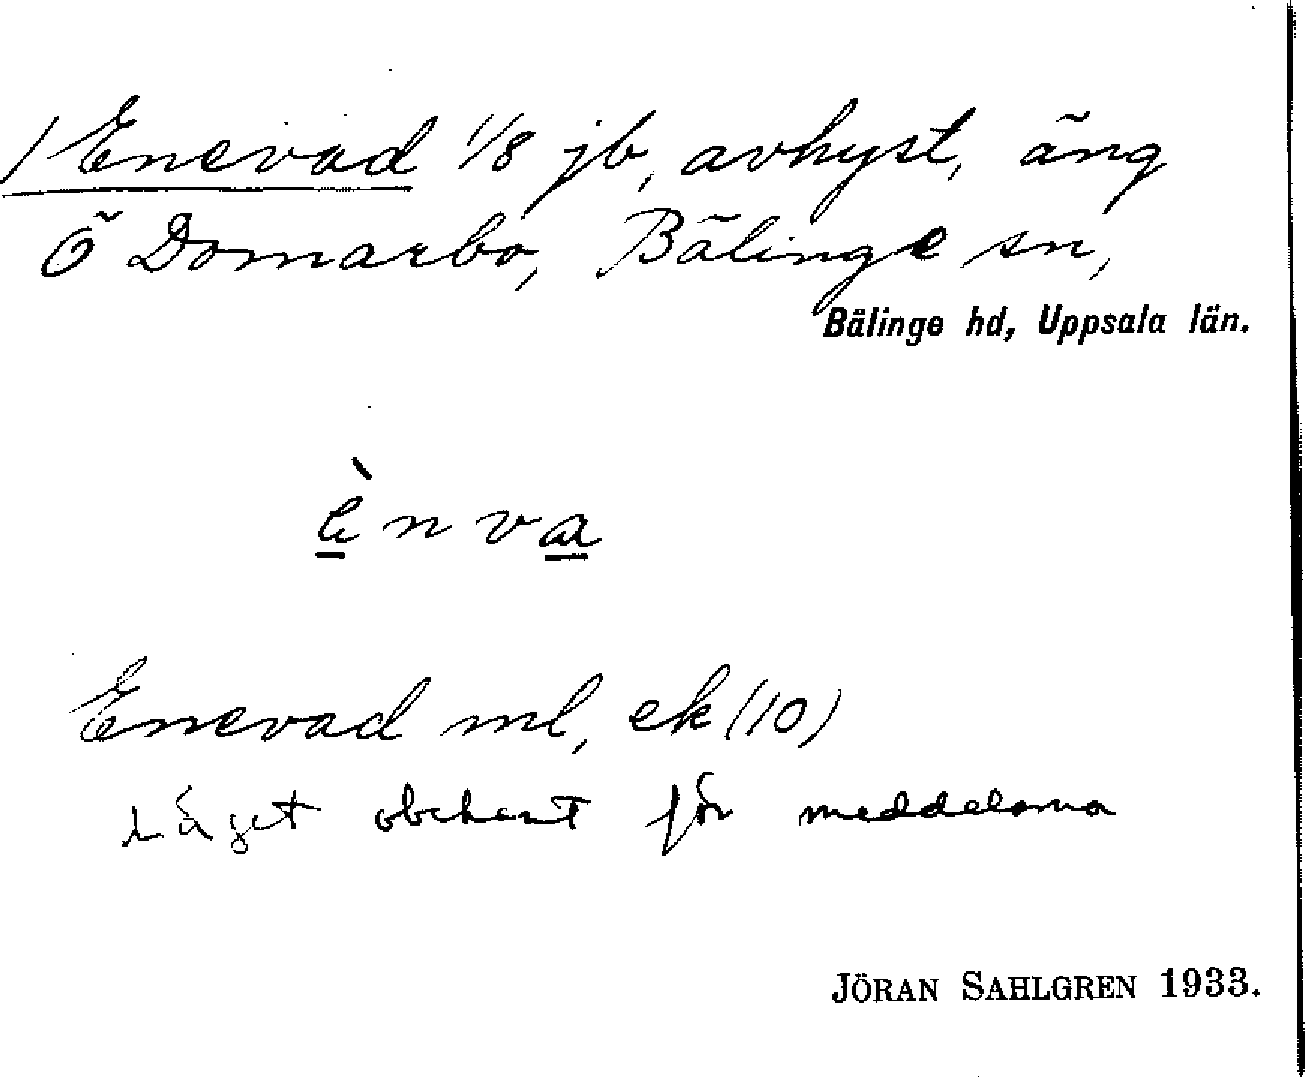 / Enevad 1/8 jb, avhyst, äng
Ö Domarbo, Bälinge sn,
Bälinge hd, Uppsala län.
ènva
Enevad ml, ek (10)
Läget obekant för meddelarna
JÖRAN SAHLGREN 1933.